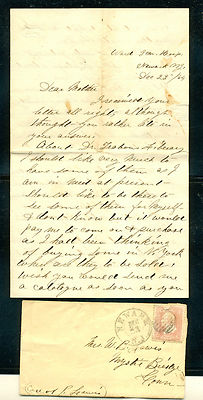 Newark N.J.
Dec 23rd / 64
Dear Brother
I received your
letter all right, although
thought you rather late in
your answer.
About Dr. Library
I should like very much to
have some of them as I
am in need at present
Should like to be there to
see some of them for myself
& dont know but it would
pay me to come on & purchase
as I had been thinking
of buying some in N. York
when as they to be sold I
wish you would send me
a catalogue as soon as you
NEWARK
N.J.
Mr W. Lewis
Bridge
Conn
Lewis